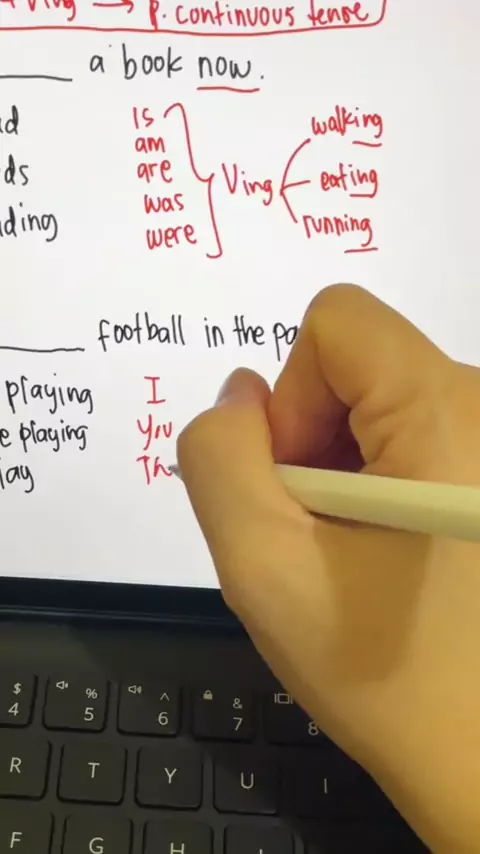 Ving → p. continuous tense
a book now.
is
am
are
was
were
Ving
walking
eating
running
football in the
playing
I
playing
You
Th
$
4
%
5
^
6
&
7
8
R
T
Y
U
I
F
G
H